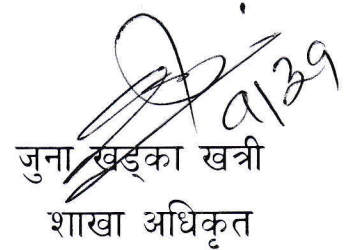 १/३१
जुना खड्का खत्री
शाखा अधिकृत